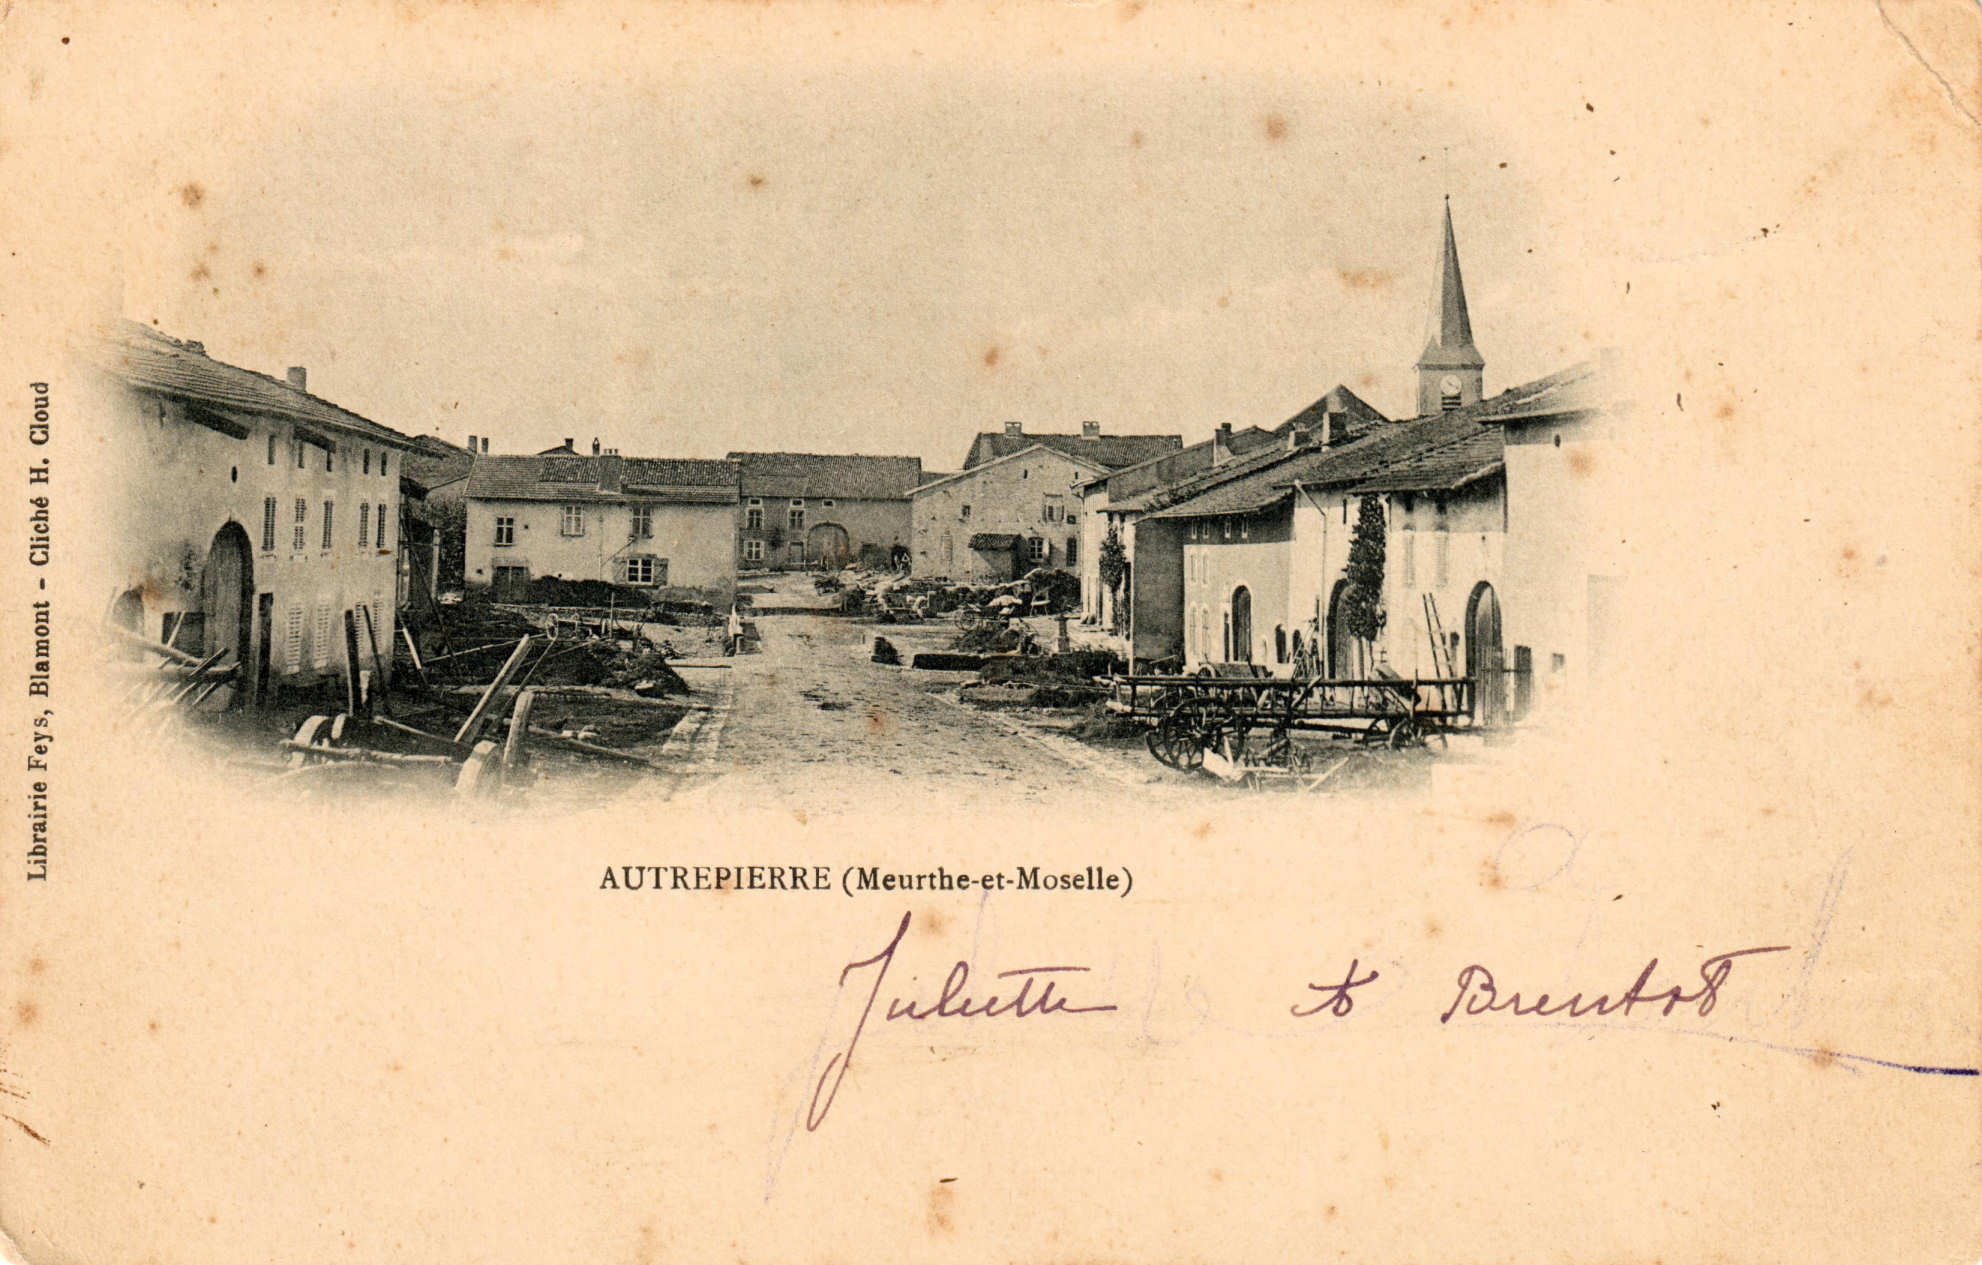 Librairie Feys, Blamont - Cliché H. Cloud
AUTREPIERRE (Meurthe-et-Moselle)
Juliette